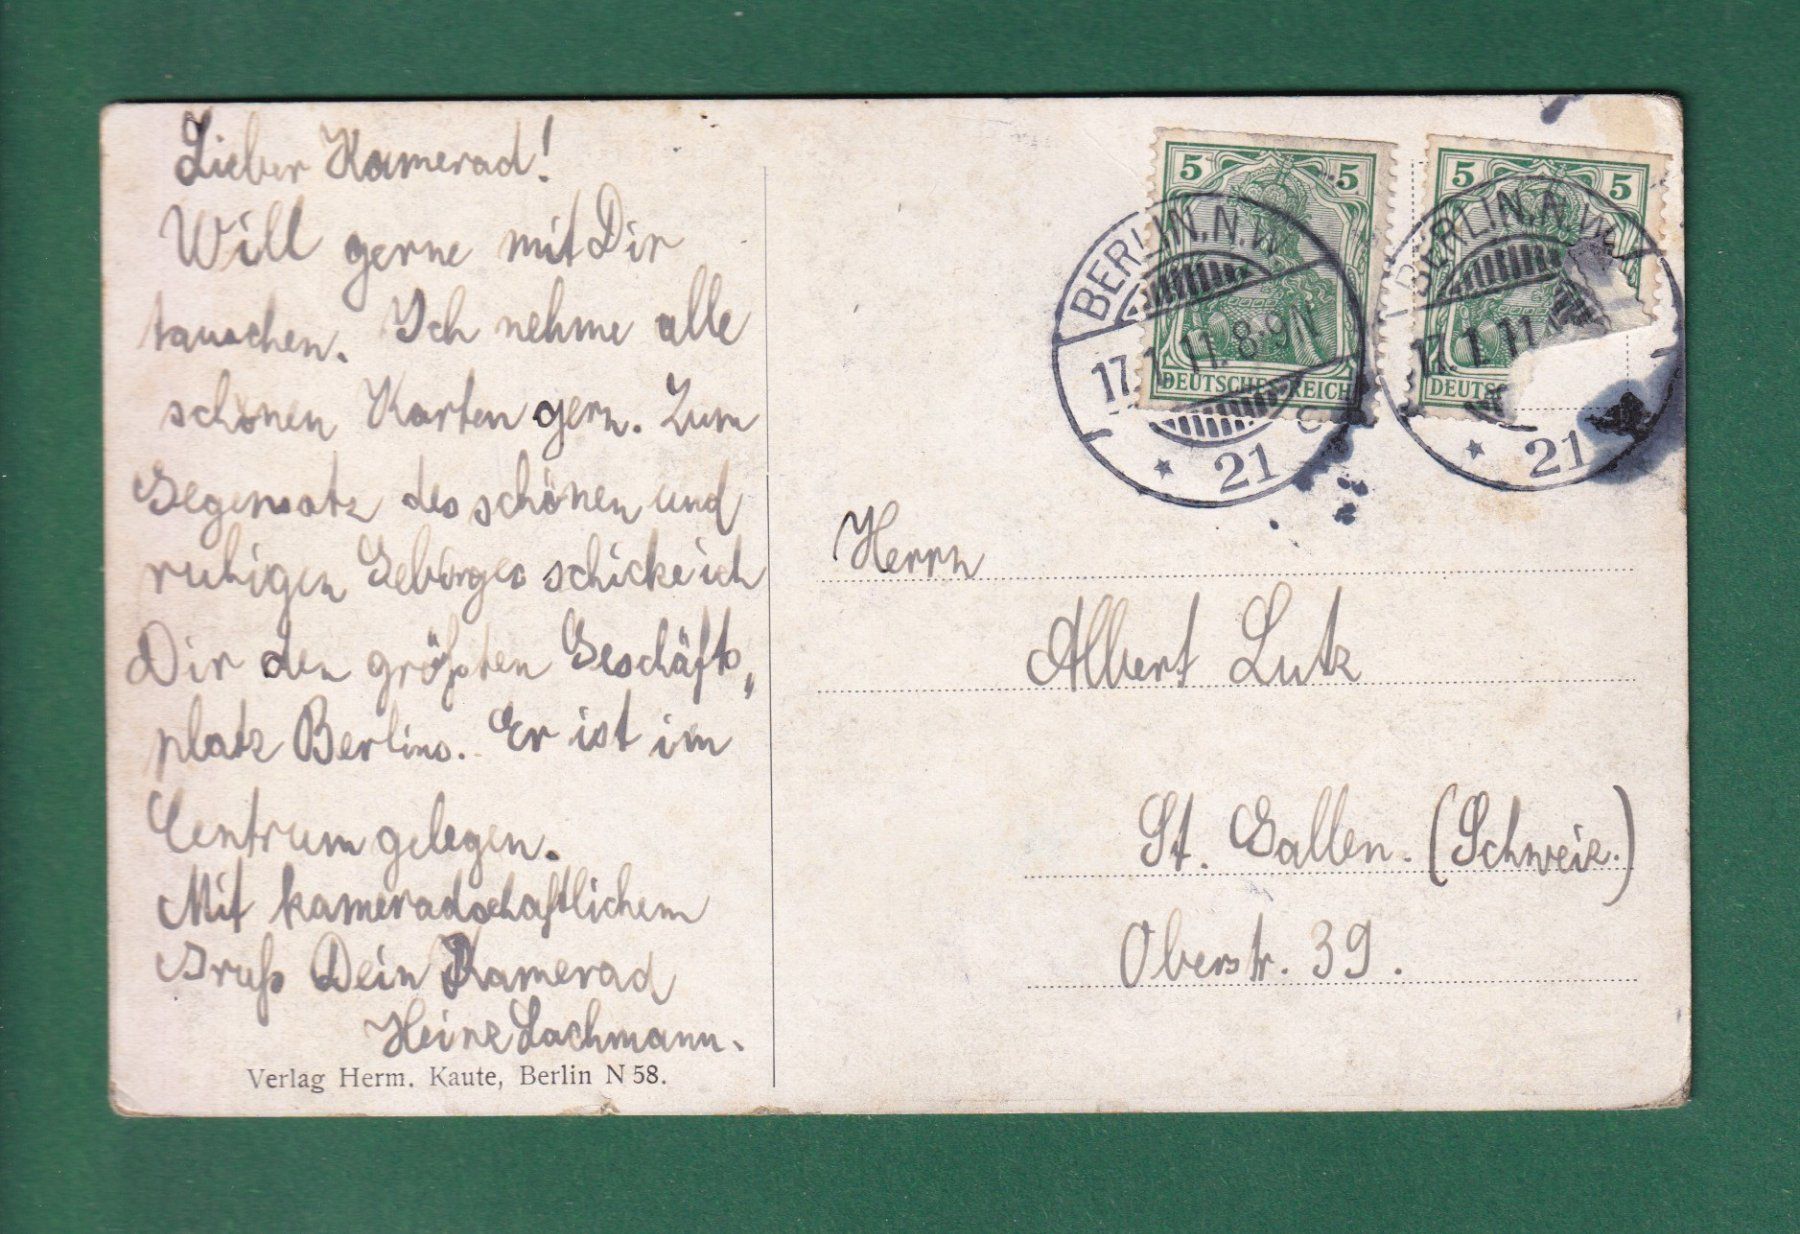 Lieber Kamerad!
Will gerne mit Dir
tauschen. Ich nehme alle
schönen Karten gern. Zum
Gegensatz des schönen und
ruhigen Gebirges schicke ich
Dir den größten Geschäfts„
platz Berlins. Er ist im
Centrum gelegen.
Mit kameradschaftlichem
Gruß Dein Kamerad
Heinz Lachmann.
Verlag Herm. Kaute, Berlin N 58.
5 5
DEUTSCHES REICH
BERLIN. N.W.
17.1.11. 8-9N
* 21 c
5 5
BERLIN. N.W.
17.1.11
* 21
Herrn
Albert Lutz
St. Gallen. (Schweiz.)
Oberstr. 39.